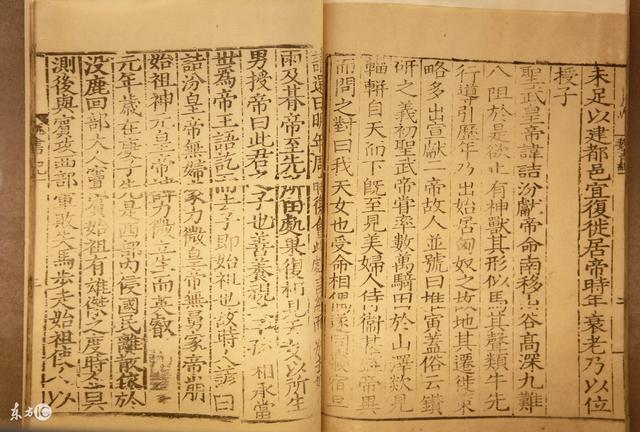 未足以建都邑宜復徙居帝時年衰老乃以位
授子
聖武皇帝諱詰汾獻帝命南移山谷高深九難
八阻於是欲止有神獸其形似馬其聲類牛先
行導引歷年乃出始居匈奴之故地其遷徙策
略多出宣獻二帝故人並號曰推寅蓋俗云鑽
研之義初聖武帝嘗率數萬騎田於山澤欻見
輜軿自天而下既至見美婦人侍衛甚盛帝異
而問之對曰我天女也受命相偶遂同寢宿旦
請還曰明年周時復會此處言終而
雨及朞帝至先所田處果復相見天女以所生
男授帝曰此君之子也善養視之子孫相承當
世為帝王語訖而去子即始祖也故時人諺曰
詰汾皇帝無婦家力微皇帝無舅家帝崩
始祖神元皇帝諱力微立生而英叡
元年歲在庚子先是西部內侵國民離散依於
沒鹿回部大人竇賓始祖有雄傑之度時人莫
測後與賓攻西部軍敗失馬步走始祖使人以
东方IC